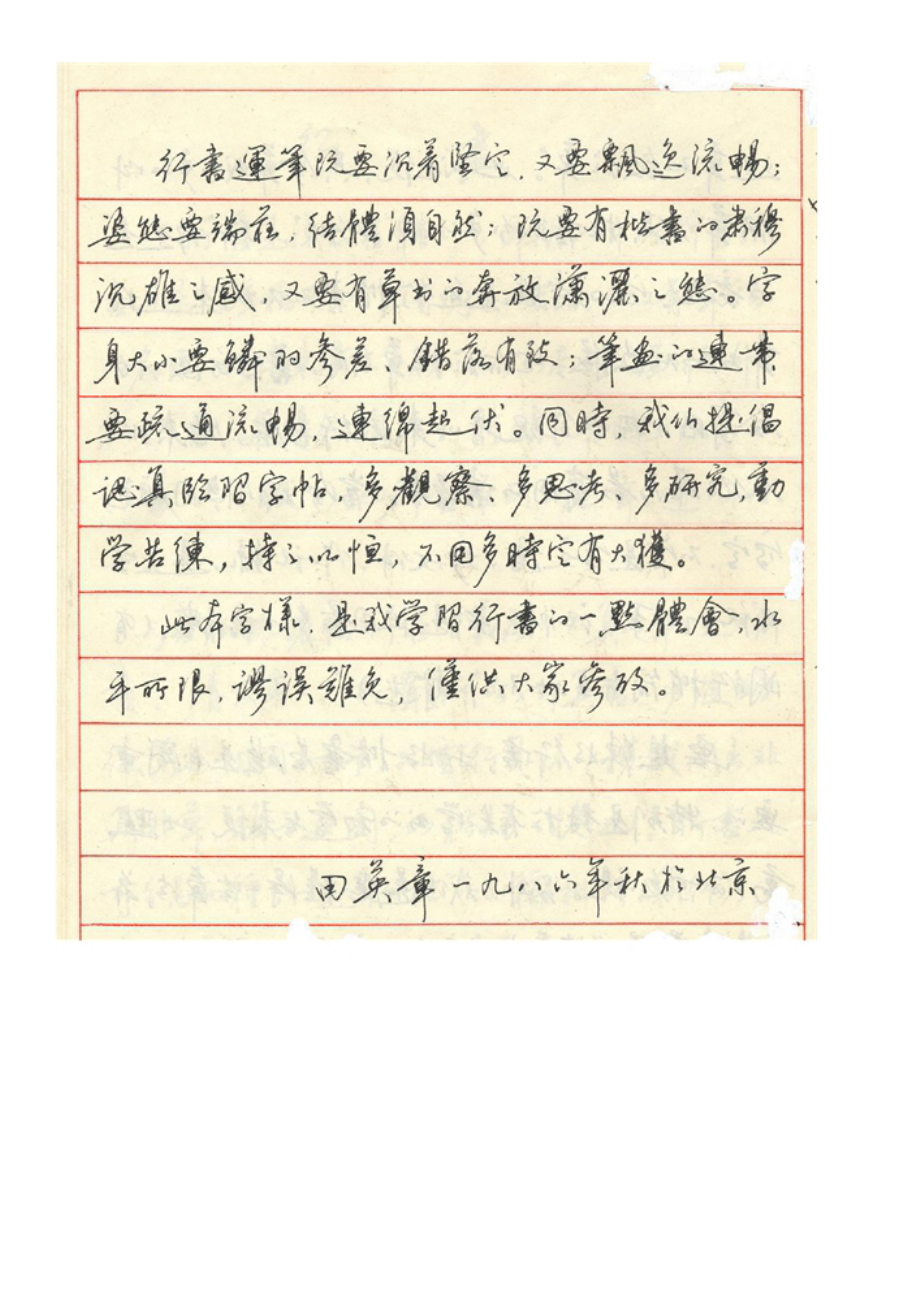 行書運筆既要沉着堅定，又要飄逸流暢；
姿態要端莊，結體須自然；既要有楷書的肅穆
沉雄之感，又要有草书的奔放瀟灑之態。字
身大小要鳞的參差、錯落有致；筆畫的連带
要疏通流暢，連綿起伏。同時，我们提倡
認真临習字帖，多觀察、多思考、多研究，勤
学苦練，持之以恒，不用多時定有大獲。
此本字樣，是我学習行書的一點體會，水
平所限，謬误難免，僅供大家參攷。
田英章一九八六年秋於北京